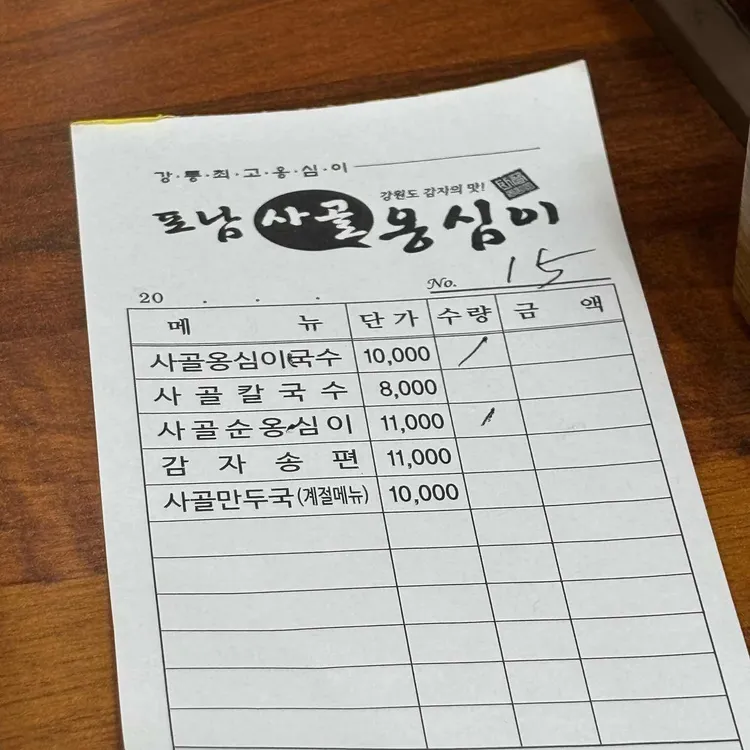 강·릉·최·고·옹·심·이
강원도 감자의 맛!
포남 사골 옹심이
No. 15
20 . . .
메 뉴 단 가 수 량 금 액
사골옹심이국수 10,000 /
사 골 칼 국 수 8,000
사골순옹심이 11,000 /
감 자 송 편 11,000
사골만두국(계절메뉴) 10,000